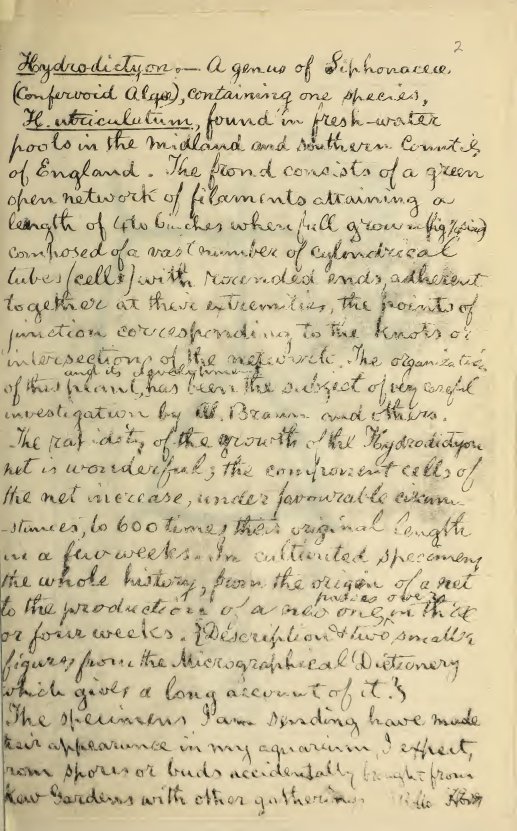 2
Hydrodictyon.— A genus of Siphonaceæ
(Confervoid Algæ), containing one species,
H. utriculatum, found in fresh-water
pools in the midland and southern Counties
of England. The frond consists of a green
open network of filaments attaining a
length of 4 to 6 inches when full grown (fig
composed of a vast number of cylindrical
tubes (cells) with rounded ends, adherent
together at their extremities, the points of
junction corresponding to the knots or
intersections of the network. The organization
and its development
of this plant, has been the subject of very careful
investigation by A. Braun and others.
The rapidity of the growth of the Hydrodictyon
net is wonderful; the component cells of
the net increase, under favourable circum-
-stances, to 600 times their original length
in a few weeks. In cultivated specimens
the whole history, from the origin of a net
passes over
to the production of a new one, in three
or four weeks. {Description & two smaller
figures from the Micrographical Dictionery
which gives a long account of it.}
The specimens I am sending have made
their appearance in my aquarium, I expect,
from spores or buds accidentally brought from
Kew Gardens with other gatherings